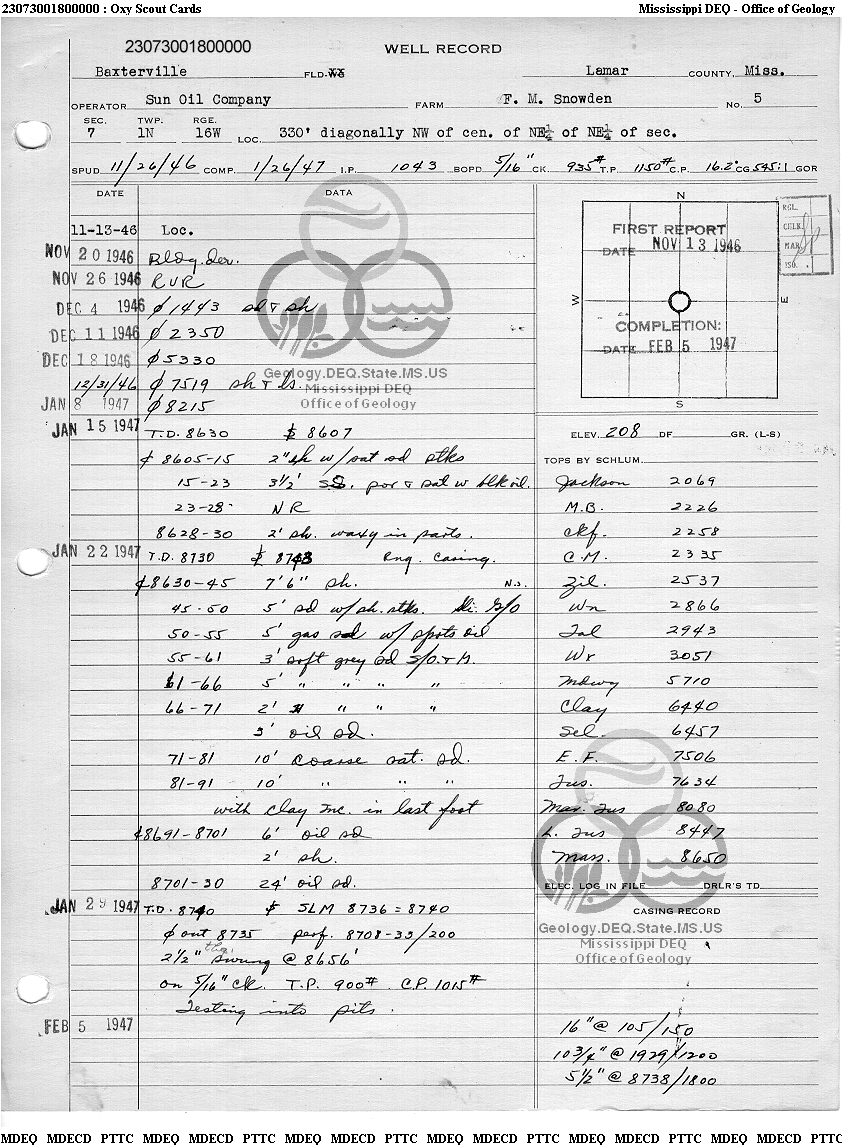 23073001800000 : Oxy Scout Cards
Mississippi DEQ - Office of Geology
23073001800000
WELL RECORD
Baxterville FLD. Lamar COUNTY, Miss.
OPERATOR Sun Oil Company FARM F. M. Snowden No. 5
SEC. TWP. RGE.
7 1N 16W LOC. 330' diagonally NW of cen. of NE¼ of NE¼ of sec.
SPUD 11/26/46 COMP. 1/26/47 I.P. 1043 BOPD 5/16" CK. 935# T.P. 1150# C.P. 16.2° CG 545:1 GOR
DATE DATA
11-13-46 Loc.
NOV 20 1946 Bldg. der.
NOV 26 1946 RUR
DEC 4 1946 ϕ 1443 sd & sh
DEC 11 1946 ϕ 2350
DEC 18 1946 ϕ 5330
12/31/46 ϕ 7519 sh & ls.
JAN 8 1947 ϕ 8215
JAN 15 1947 T.D. 8630 8607
8605-15 2" sh w/ sat sd stks
15-23 3½' por & sat w blk oil.
23-28 NR
8628-30 2' sh. waxy in parts.
JAN 22 1947 T.D. 8730 Rng. casing.
8630-45 7'6" sh. N.S.
45-50 5' sd w/ sh. stks. S/O
50-55 5' gas sd w/ spots oil
55-61 3' soft grey sd S/O & M.
61-66 5' " " " "
66-71 2' " " "
3' oil sd.
71-81 10' coarse sat. sd.
81-91 10' " " "
with clay Inc. in last foot
8691-8701 6' oil sd
2' sh.
8701-30 24' oil sd.
JAN 29 1947 T.D. 8740 SLM 8736 = 8740
ϕ out 8735 perf. 8708-33/200
2½" tbg swung @ 8656'
on 5/16" CK. T.P. 900# C.P. 1015#
Testing into pits.
FEB 5 1947
N
W
E
S
FIRST REPORT
DATE NOV 13 1946
COMPLETION:
DATE FEB 5 1947
RGL.
CHLK.
MAP
ISO.
ELEV. 208 DF GR. (L-S)
TOPS BY SCHLUM.
Jackson 2069
M.B. 2226
Ckf. 2258
C.M. 2335
Zil. 2537
Wn 2866
Tal 2943
Wx 3051
Mdwy 5710
Clay 6440
Sel. 6457
E.F. 7506
Tus. 7634
Mar. Tus 8080
L. Tus 8447
Mass. 8650
ELEC. LOG IN FILE DRLR'S TD
CASING RECORD
16" @ 105/150
10¾" @ 1929/1200
5½" @ 8738/1800
Geology.DEQ.State.MS.US
Mississippi DEQ
Office of Geology
Geology.DEQ.State.MS.US
Mississippi DEQ
Office of Geology
MDEQ MDECD PTTC MDEQ MDECD PTTC MDEQ MDECD PTTC MDEQ MDECD PTTC MDEQ MDECD PTTC MDEQ MDECD PTTC